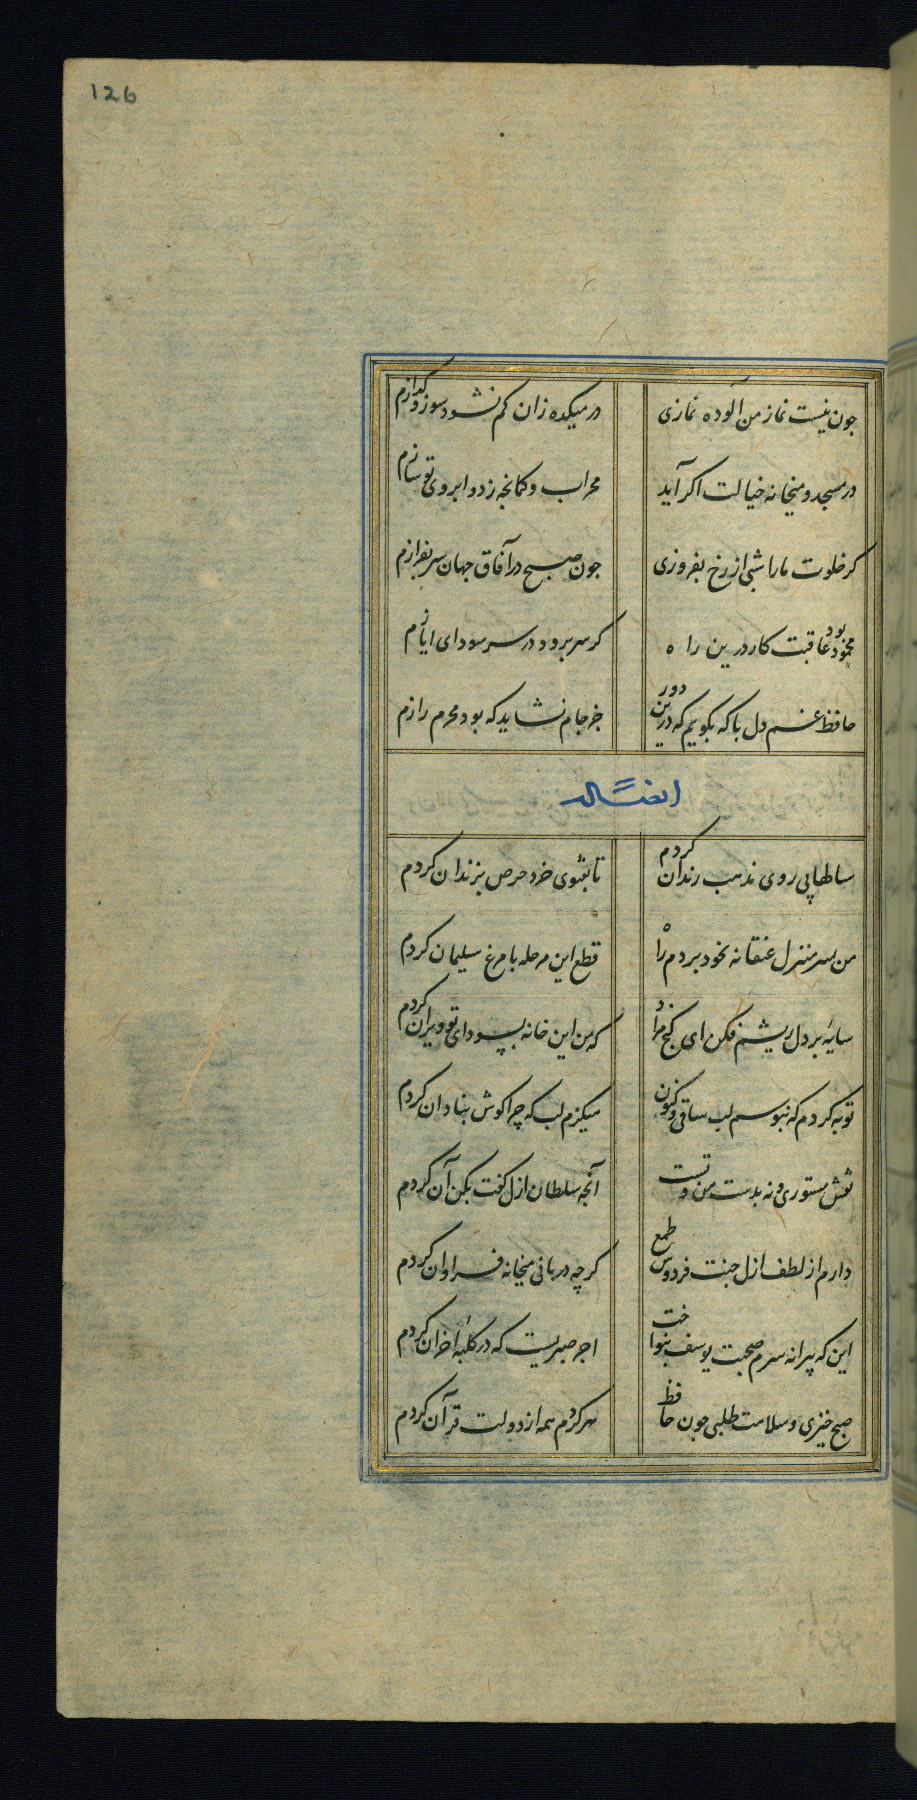 126
جون نیست نماز من آلوده نمازی در میکده زان کم نشود سوز و کدازم
در مسجد و میخانه خیالت اکر آید محراب و کمانچه ز دو ابروی تو سازم
کر خلوت ما را شبی از رخ بفروزی جون صبح در آفاق جهان سر بفرازم
محمود بود عاقبت کار درین راه کر سر برود در سر سودای ایازم
حافظ غم دل با که بکویم که درین دور جز جام نشاید که بود محرم رازم
ایضا له
سالها پی روی مذهب رندان کردم تا بفتوی خرد حرص بزندان کردم
من بسر منزل عنقا نه بخود بردم راه قطع این مرحله با مرغ سلیمان کردم
سایهٔ بر دل ریشم فکن ای کنج مراد که من این خانه بسودای تو ویران کردم
توبه کردم که نبوسم لب ساقی و کنون میکزم لب که چرا کوش بنادان کردم
نقش مستوری و نه بدست من و تست آنچه سلطان ازل کفت بکن آن کردم
دارم از لطف ازل جنت فردوس طمع کرچه دربانی میخانه فراوان کردم
این که پیرانه سرم صحبت یوسف بنواخت اجر صبریست که در کلبهٔ احزان کردم
صبح خیزی و سلامت طلبی جون حافظ هر کردم همه از دولت قرآن کردم